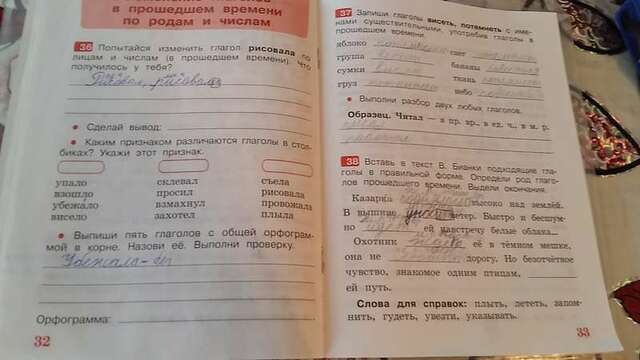 в прошедшем времени
по родам и числам
36 Попытайся изменить глагол рисовала по
лицам и числам (в прошедшем времени). Что
получилось у тебя?
• Сделай вывод:
• Каким признаком различаются глаголы в стол-
биках? Укажи этот признак.
упало склевал съела
взошло просил провожала
убежало взмахнул плыла
висело захотел
• Выпиши пять глаголов с общей орфограм-
мой в корне. Назови её. Выполни проверку.
Орфограмма:
32
37 Запиши глаголы висеть, потемнеть с име-
нами существительными, употребив глаголы в
прошедшем времени.
яблоко
груша
сумки
груз
небо
• Выполни разбор двух любых глаголов.
Образец. Читал – в пр. вр., в ед. ч., в м. р.
38 Вставь в текст В. Бианки подходящие гла-
голы в правильной форме. Определи род глаго-
лов прошедшего времени. Выдели окончания.
Казарка высоко над землёй.
В вышине ветер. Быстро и бесшум-
но ей навстречу белые облака...
Охотник её в тёмном мешке,
она не дорогу. Но безотчётное
чувство, знакомое одним птицам,
ей путь.
Слова для справок: плыть, лететь, запом-
нить, гудеть, увезти, указывать.
33